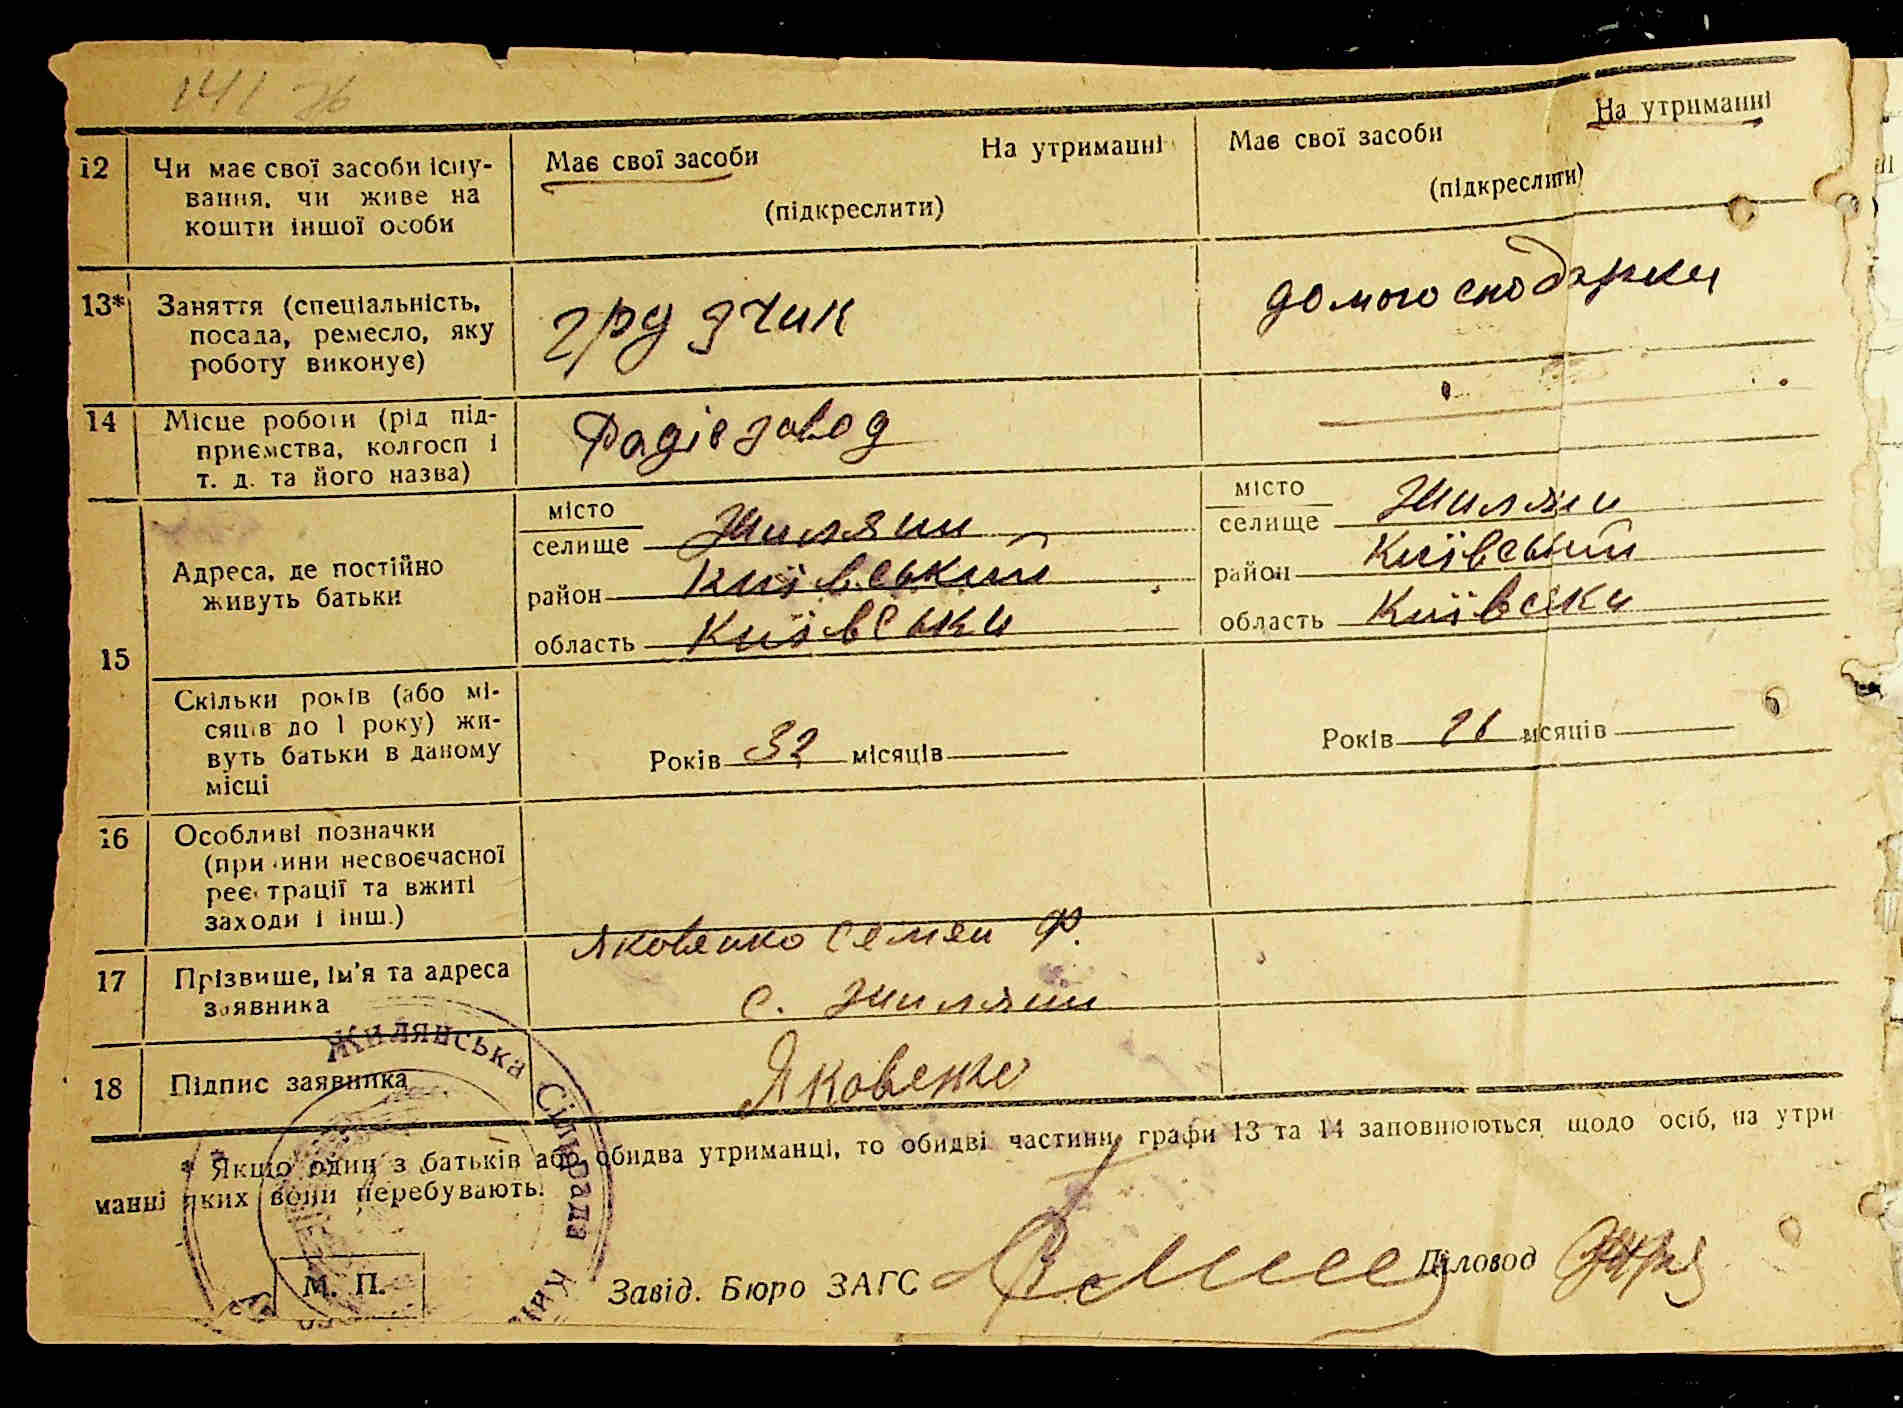 141 зв
12 Чи має свої засоби існу-
вання, чи живе на
кошти іншої особи
Має свої засоби На утриманні
(підкреслити)
Має свої засоби На утриманні
(підкреслити)
13* Заняття (спеціальність,
посада, ремесло, яку
роботу виконує)
грузчик
домогосподарка
14 Місце роботи (рід під-
приємства, колгосп і
т. д. та його назва)
Радіозавод
15 Адреса, де постійно
живуть батьки
місто
селище Жиляни
район Київський
область Київська
місто
селище Жиляни
район Київський
область Київска
Скільки років (або мі-
сяців до 1 року) жи-
вуть батьки в даному
місці
Років 32 місяців
Років 26 місяців
16 Особливі позначки
(причини несвоєчасної
реєстрації та вжиті
заходи і інш.)
17 Прізвище, ім'я та адреса
заявника
Яковенко Семен Ф.
с. Жиляни
18 Підпис заявника
Яковенко
* Якщо один з батьків або обидва утриманці, то обидві частини графи 13 та 14 заповнюються щодо осіб, на утри
манні яких вони перебувають.
М. П.
Завід. Бюро ЗАГС
Діловод
Жилянська Сільрада Киї